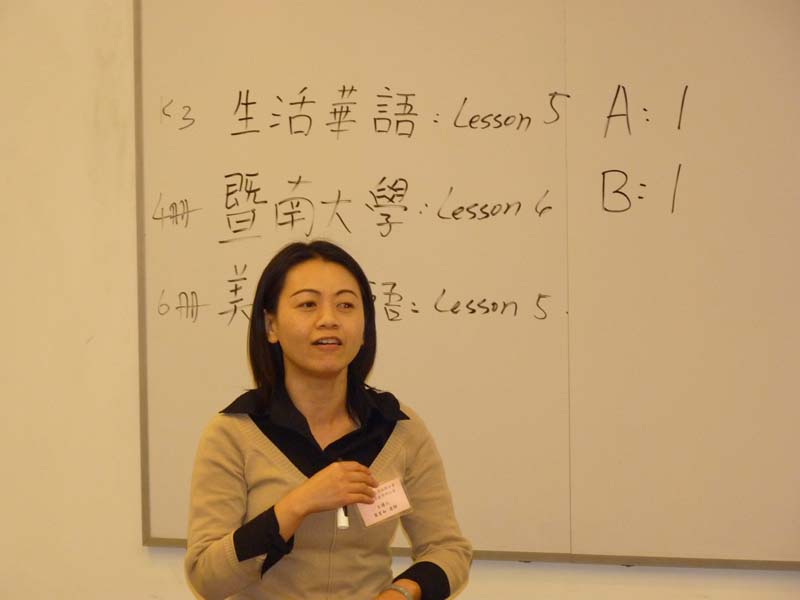 K3 生活華語: Lesson 5
4冊 暨南大學: Lesson 6
6冊 美 語: Lesson 5
A: 1
B: 1